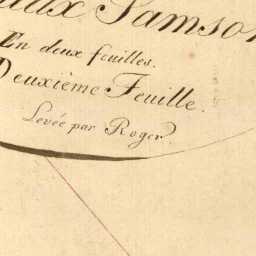 aux Samson
En deux feuilles.
Deuxième Feuille.
Levée par Roger.